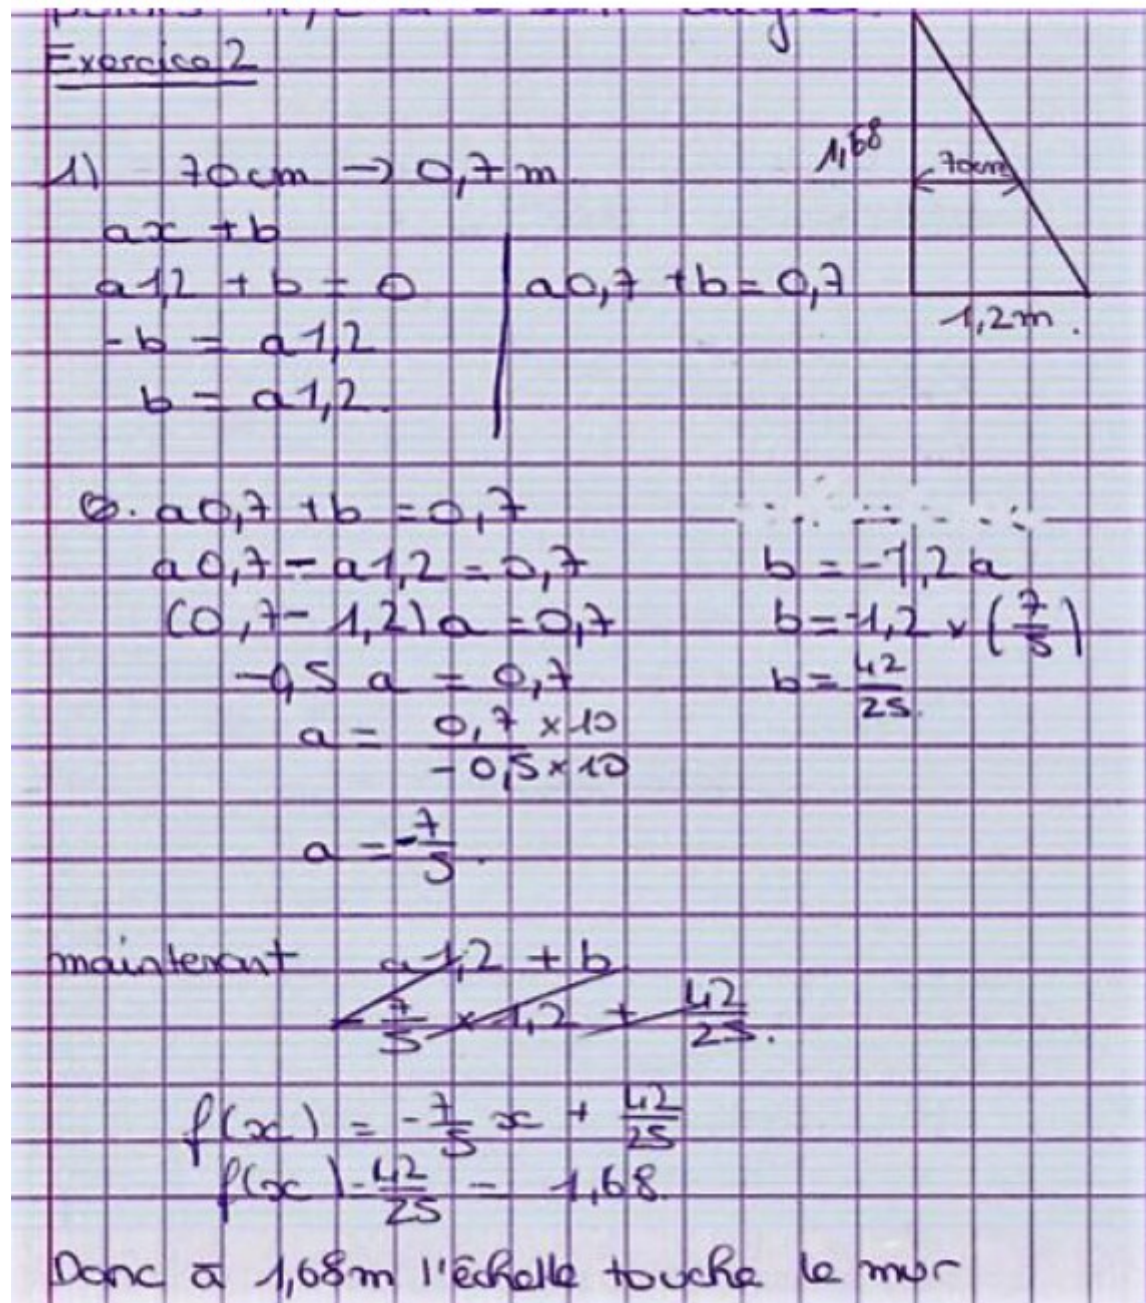 Exercice 2
1) 70cm → 0,7 m.
ax + b
a1,2 + b = 0
-b = a1,2
b = a1,2.
a0,7 + b = 0,7
1,68
70cm
1,2m.
a0,7 + b = 0,7
a0,7 - a1,2 = 0,7
(0,7 - 1,2)a = 0,7
-0,5 a = 0,7
a = 0,7 × 10 / -0,5 × 10
a = -7/5.
b = -1,2a
b = -1,2 × (7/5)
b = 42/25.
maintenant a 1,2 + b
-7/5 × 1,2 + 42/25.
f(x) = -7/5 x + 42/25
f(x) - 42/25 = 1,68.
Donc à 1,68m l'échelle touche le mur